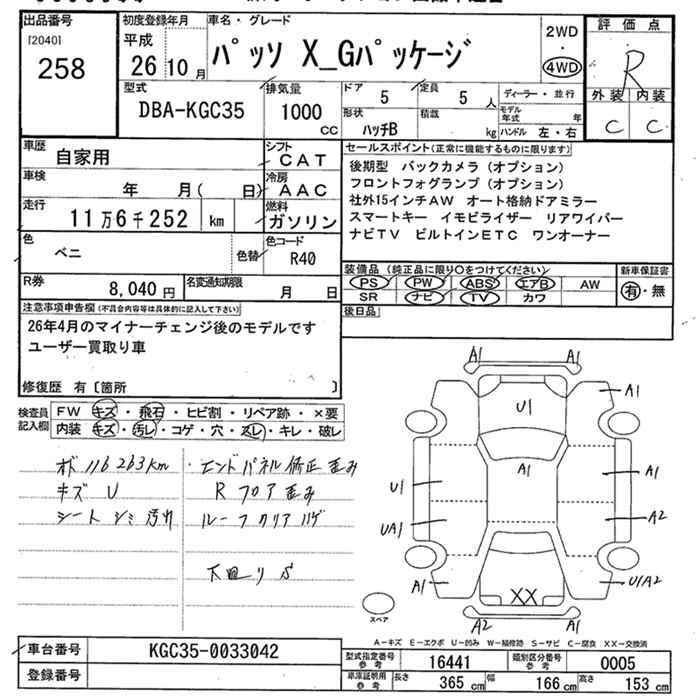 出品番号
[2040]
258
初度登録年月
平成
26 10月
車名・グレード
パッソ X_Gパッケージ
2WD
・
4WD
評価点
R
外装 内装
C C
型式
DBA-KGC35
排気量
1000
CC
ドア
5
定員
5 人
形状
ハッチB
積載
kg
ディーラー・並行
モデル年式
年
ハンドル 左・右
車歴
自家用
シフト
CAT
車検
年 月( 日)
冷房
AAC
走行
11万6千252 km
燃料
ガソリン
色
ベニ
色替
色コード
R40
R券
8,040円
名変通知期限
月 日
セールスポイント(正常に機能するものに限ります)
後期型 バックカメラ(オプション)
フロントフォグランプ(オプション)
社外15インチAW オート格納ドアミラー
スマートキー イモビライザー リアワイパー
ナビTV ビルトインETC ワンオーナー
装備品(純正品に限り○をつけてください)
新車保証書
PS PW ABS エアB AW
SR ナビ TV カワ
有・無
後日品
注意事項申告欄(不具合内容等は具体的に記入して下さい)
26年4月のマイナーチェンジ後のモデルです
ユーザー買取り車
修復歴 有〔箇所 〕
検査員記入欄
FW キズ・飛石・ヒビ割・リペア跡・×要
内装 キズ・汚レ・コゲ・穴・スレ・キレ・破レ
オド 116263km
キズ U
シート シミ 汚れ
エンドパネル修正歪み
R フロア歪み
ルーフクリアハゲ
下回り S
A1 A1
A1
U1
A1
A1
U1
UA1
A2
A1
U1A2
XX
A2 A1
スペア
A-キズ E-エクボ U-凹み W-補修跡 S-サビ C-腐食 XX-交換済
車台番号
KGC35-0033042
登録番号
型式指定番号
参考
16441
類別区分番号
参考
0005
車庫証明用
参考
長さ
365 cm
幅
166 cm
高さ
153 cm